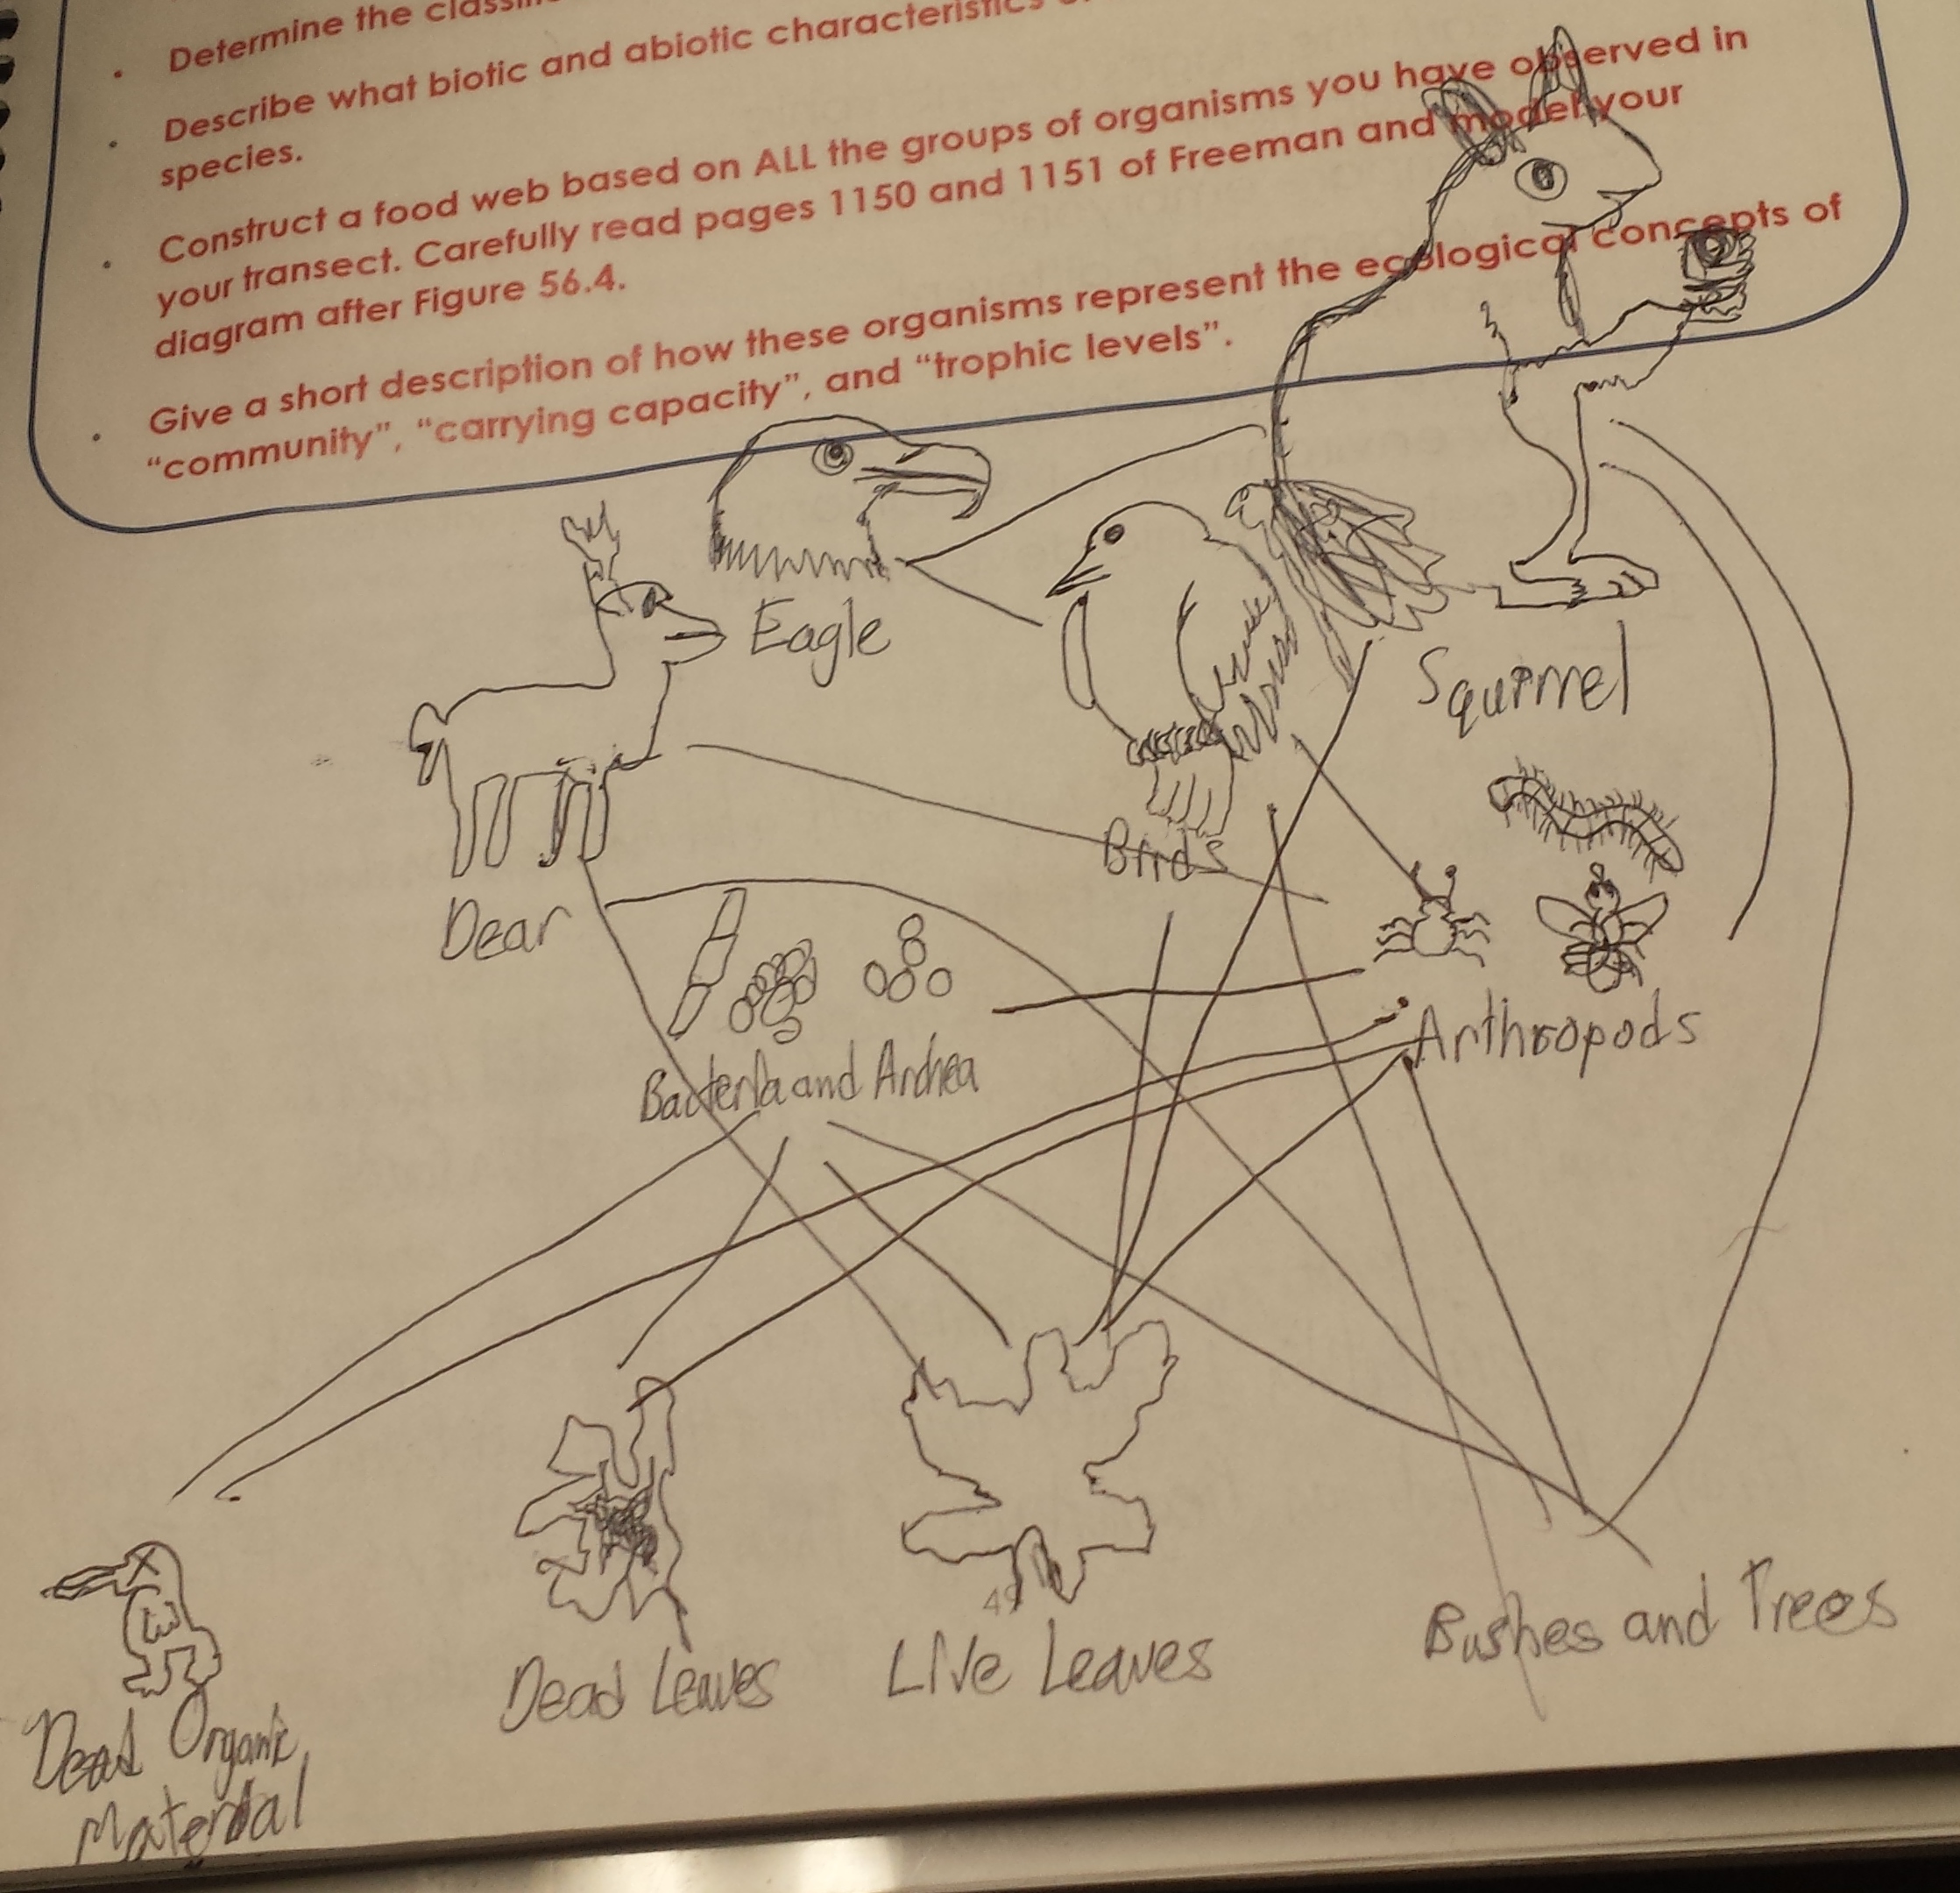 • Determine the
• Describe what biotic and abiotic characteristics
species.
• Construct a food web based on ALL the groups of organisms you have observed in
your transect. Carefully read pages 1150 and 1151 of Freeman and model your
diagram after Figure 56.4.
• Give a short description of how these organisms represent the ecological concepts of
“community”, “carrying capacity”, and “trophic levels”.
Eagle
Squirrel
Birds
Dear
Arthropods
Bacteria and Archea
Bushes and Trees
Live Leaves
Dead Leaves
Dead Organic
Material